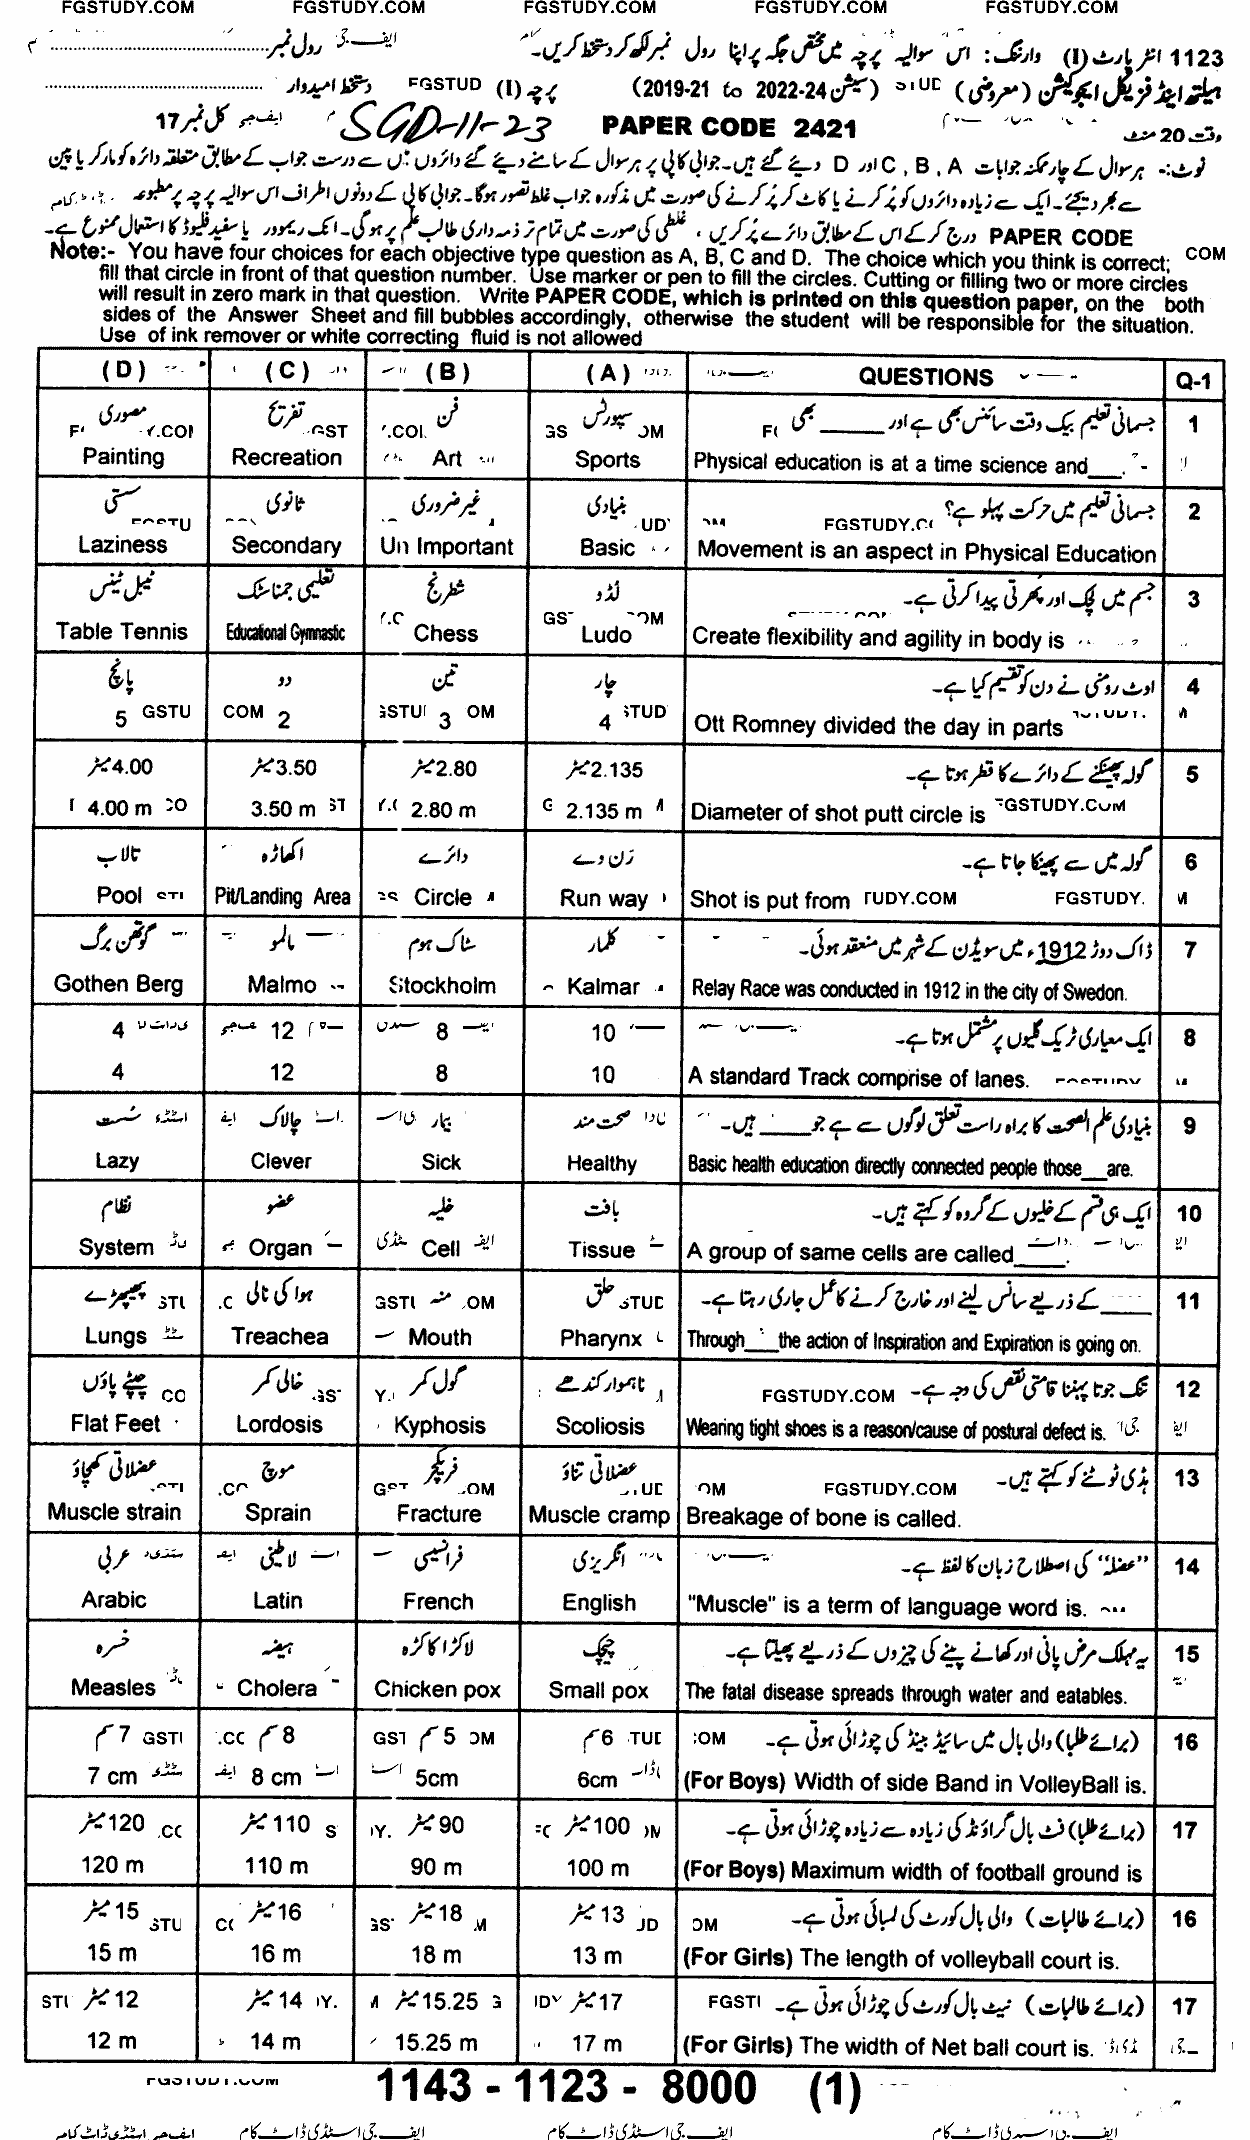 FGSTUDY.COM FGSTUDY.COM FGSTUDY.COM FGSTUDY.COM FGSTUDY.COM
1123 انٹر پارٹ (I) وارننگ: اس سوالیہ پرچہ میں مختص جگہ پر اپنا رول نمبر لکھ کر دستخط کریں۔ رول نمبر
ہیلتھ اینڈ فزیکل ایجوکیشن (معروضی) (سیشن 2022-24 to 2019-21) پرچہ (I) دستخط امیدوار
وقت 20 منٹ PAPER CODE 2421 SGD-11-23 کل نمبر 17
نوٹ:- ہر سوال کے چار ممکنہ جوابات A ، B ، C اور D دیئے گئے ہیں۔ جوابی کاپی پر ہر سوال کے سامنے دیئے گئے دائروں میں سے درست جواب کے مطابق متعلقہ دائرہ کو مارکر یا پین
سے بھر دیجئے۔ ایک سے زیادہ دائروں کو پُر کرنے یا کاٹ کر پُر کرنے کی صورت میں مذکورہ جواب غلط تصور ہوگا۔ جوابی کاپی کے دونوں اطراف اس سوالیہ پرچہ پر مطبوعہ
PAPER CODE درج کر کے اس کے مطابق دائرے پُر کریں ، غلطی کی صورت میں تمام تر ذمہ داری طالب علم پر ہوگی۔ انک ریموور یا سفید فلیوڈ کا استعمال ممنوع ہے۔
Note:- You have four choices for each objective type question as A, B, C and D. The choice which you think is correct;
fill that circle in front of that question number. Use marker or pen to fill the circles. Cutting or filling two or more circles
will result in zero mark in that question. Write PAPER CODE, which is printed on this question paper, on the both
sides of the Answer Sheet and fill bubbles accordingly, otherwise the student will be responsible for the situation.
Use of ink remover or white correcting fluid is not allowed
(D) (C) (B) (A) QUESTIONS Q-1
مصوری تفریح فن سپورٹس جسمانی تعلیم بیک وقت سائنس بھی ہے اور ____ بھی 1
Painting Recreation Art Sports Physical education is at a time science and___.
سستی ثانوی غیر ضروری بنیادی جسمانی تعلیم میں حرکت پہلو ہے؟ 2
Laziness Secondary Un Important Basic Movement is an aspect in Physical Education
ٹیبل ٹینس تعلیمی جمناسٹک شطرنج لڈو جسم میں لچک اور پھرتی پیدا کرتی ہے۔ 3
Table Tennis Educational Gymnastic Chess Ludo Create flexibility and agility in body is
پانچ دو تین چار اوٹ رومنی نے دن کو تقسیم کیا ہے۔ 4
5 2 3 4 Ott Romney divided the day in parts
4.00 میٹر 3.50 میٹر 2.80 میٹر 2.135 میٹر گولہ پھینکنے کے دائرے کا قطر ہوتا ہے۔ 5
4.00 m 3.50 m 2.80 m 2.135 m Diameter of shot putt circle is
تالاب اکھاڑہ دائرے رَن وے گولہ میں سے پھینکا جاتا ہے۔ 6
Pool Pit/Landing Area Circle Run way Shot is put from
گوتھن برگ مالمو سٹاک ہوم کلمار ڈاک دوڑ 1912ء میں سویڈن کے شہر میں منعقد ہوئی۔ 7
Gothen Berg Malmo Stockholm Kalmar Relay Race was conducted in 1912 in the city of Swedon.
4 12 8 10 ایک معیاری ٹریک گلیوں پر مشتمل ہوتا ہے۔ 8
4 12 8 10 A standard Track comprise of lanes.
سُست چالاک بیمار صحت مند بنیادی علم الصحت کا براہ راست تعلق لوگوں سے ہے جو ____ ہیں۔ 9
Lazy Clever Sick Healthy Basic health education directly connected people those___are.
نظام عضو خلیہ بافت ایک ہی قسم کے خلیوں کے گروہ کو کہتے ہیں۔ 10
System Organ Cell Tissue A group of same cells are called_____.
پھیپھڑے ہوا کی نالی منہ حلق ____ کے ذریعے سانس لینے اور خارج کرنے کا عمل جاری رہتا ہے۔ 11
Lungs Treachea Mouth Pharynx Through____the action of Inspiration and Expiration is going on.
چپٹے پاؤں خالی کمر گول کمر ناہموار کندھے تنگ جوتا پہننا قامتی نقص کی وجہ ہے۔ 12
Flat Feet Lordosis Kyphosis Scoliosis Wearing tight shoes is a reason/cause of postural defect is.
عضلاتی کھچاؤ موچ فریکچر عضلاتی تناؤ ہڈی ٹوٹنے کو کہتے ہیں۔ 13
Muscle strain Sprain Fracture Muscle cramp Breakage of bone is called.
عربی لاطینی فرانسیسی انگریزی "عضلہ" کی اصطلاح زبان کا لفظ ہے۔ 14
Arabic Latin French English "Muscle" is a term of language word is.
خسرہ ہیضہ لاکڑا کاکڑہ چیچک یہ مہلک مرض پانی اور کھانے پینے کی چیزوں کے ذریعے پھیلتا ہے۔ 15
Measles Cholera Chicken pox Small pox The fatal disease spreads through water and eatables.
7 سم 8 سم 5 سم 6 سم (برائے طلبا) والی بال میں سائیڈ بینڈ کی چوڑائی ہوتی ہے۔ 16
7 cm 8 cm 5cm 6cm (For Boys) Width of side Band in VolleyBall is.
120 میٹر 110 میٹر 90 میٹر 100 میٹر (برائے طلبا) فٹ بال گراؤنڈ کی زیادہ سے زیادہ چوڑائی ہوتی ہے۔ 17
120 m 110 m 90 m 100 m (For Boys) Maximum width of football ground is
15 میٹر 16 میٹر 18 میٹر 13 میٹر (برائے طالبات) والی بال کورٹ کی لمبائی ہوتی ہے۔ 16
15 m 16 m 18 m 13 m (For Girls) The length of volleyball court is.
12 میٹر 14 میٹر 15.25 میٹر 17 میٹر (برائے طالبات) نیٹ بال کورٹ کی چوڑائی ہوتی ہے۔ 17
12 m 14 m 15.25 m 17 m (For Girls) The width of Net ball court is.
1143 - 1123 - 8000 (1)